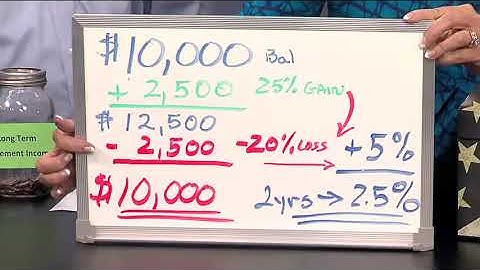 $10,000 Bal
+ 2,500 25% GAIN
$ 12,500
- 2,500 -20% Loss + 5%
$10,000 2yrs → 2.5%
Long Term
ement Incom